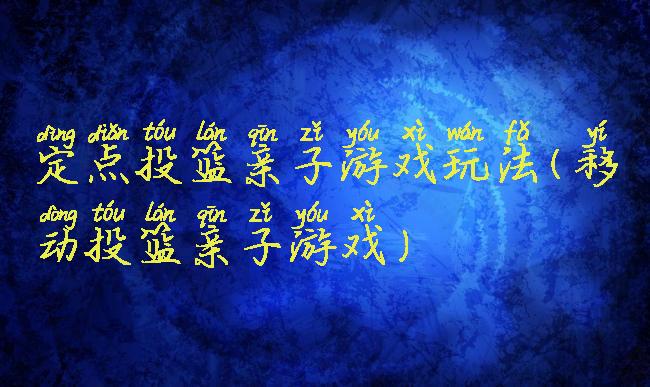 dìng diǎn tóu lán qīn zǐ yóu xì wán fǎ yí
定点投篮亲子游戏玩法(移
dòng tóu lán qīn zǐ yóu xì
动投篮亲子游戏)